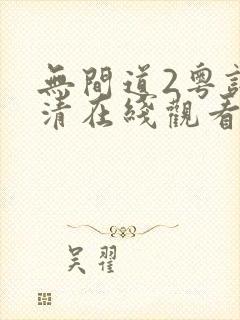 無間道2粵
清在綫觀看
吴翟